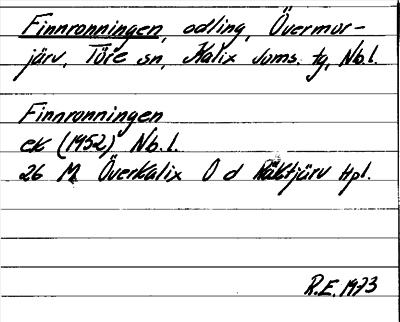 Finnronningen, odling, Övermor-
järv, Töre sn, Kalix doms. tg, Nb.l.
Finnronningen
ek (1952) Nb.l.
26 M Överkalix O d Räktjärv Hpl.
R.E. 1973